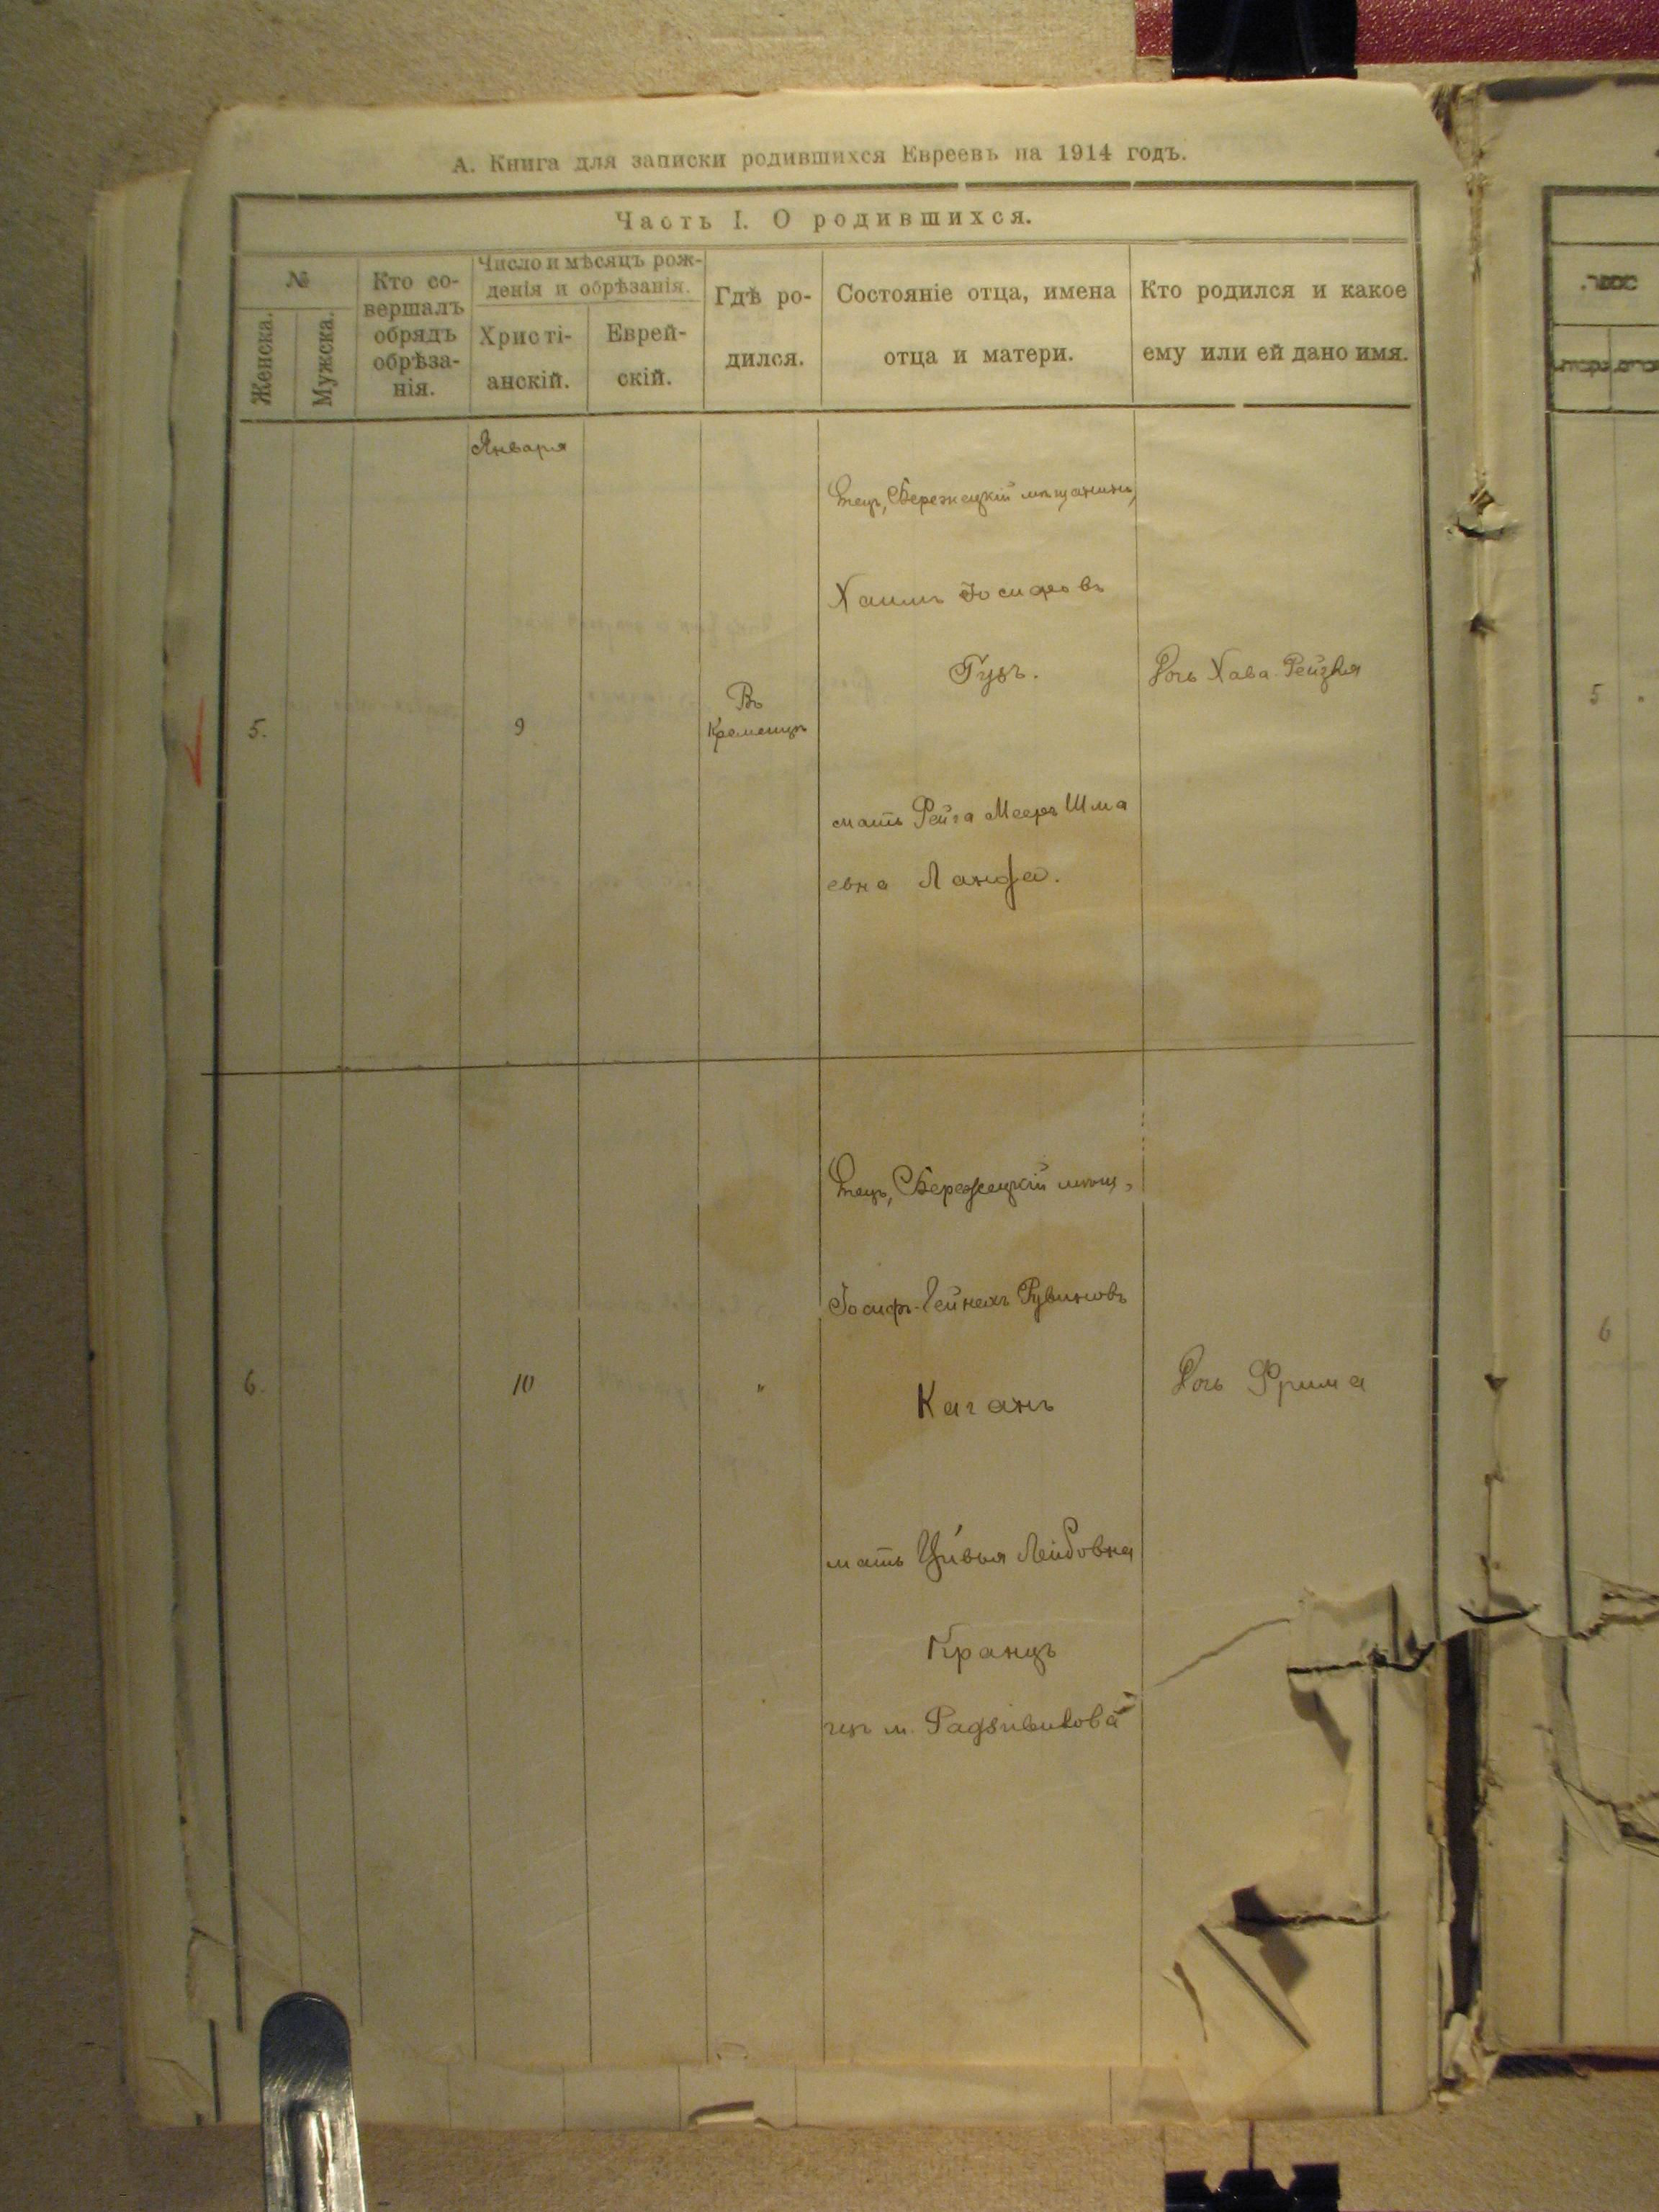 А. Книга для записки родившихся Евреевъ на 1914 годъ.
Часть I. О родившихся.
№
Женска.
Мужска.
Кто со-
вершалъ
обрядъ
обрѣза-
нія.
Число и мѣсяцъ рож-
денія и обрѣзанія.
Христі-
анскій.
Еврей-
скій.
Гдѣ ро-
дился.
Состояніе отца, имена
отца и матери.
Кто родился и какое
ему или ей дано имя.
Января
5.
9
Въ
Кременцѣ
Отецъ, Бережецкій мѣщанинъ,
Хаимъ Іосифовъ
Гузъ.
мать Рейза Мееръ Шма
евна Ланда.
Дочь Хава Рейзля
6.
10
"
Отецъ, Бережецкій мѣщ.,
Іосифъ-Гейнехъ Рувиновъ
Каганъ
мать Цивья Лейбовна
Кранцъ
изъ м. Радзивилова
Дочь Фрима
5
6